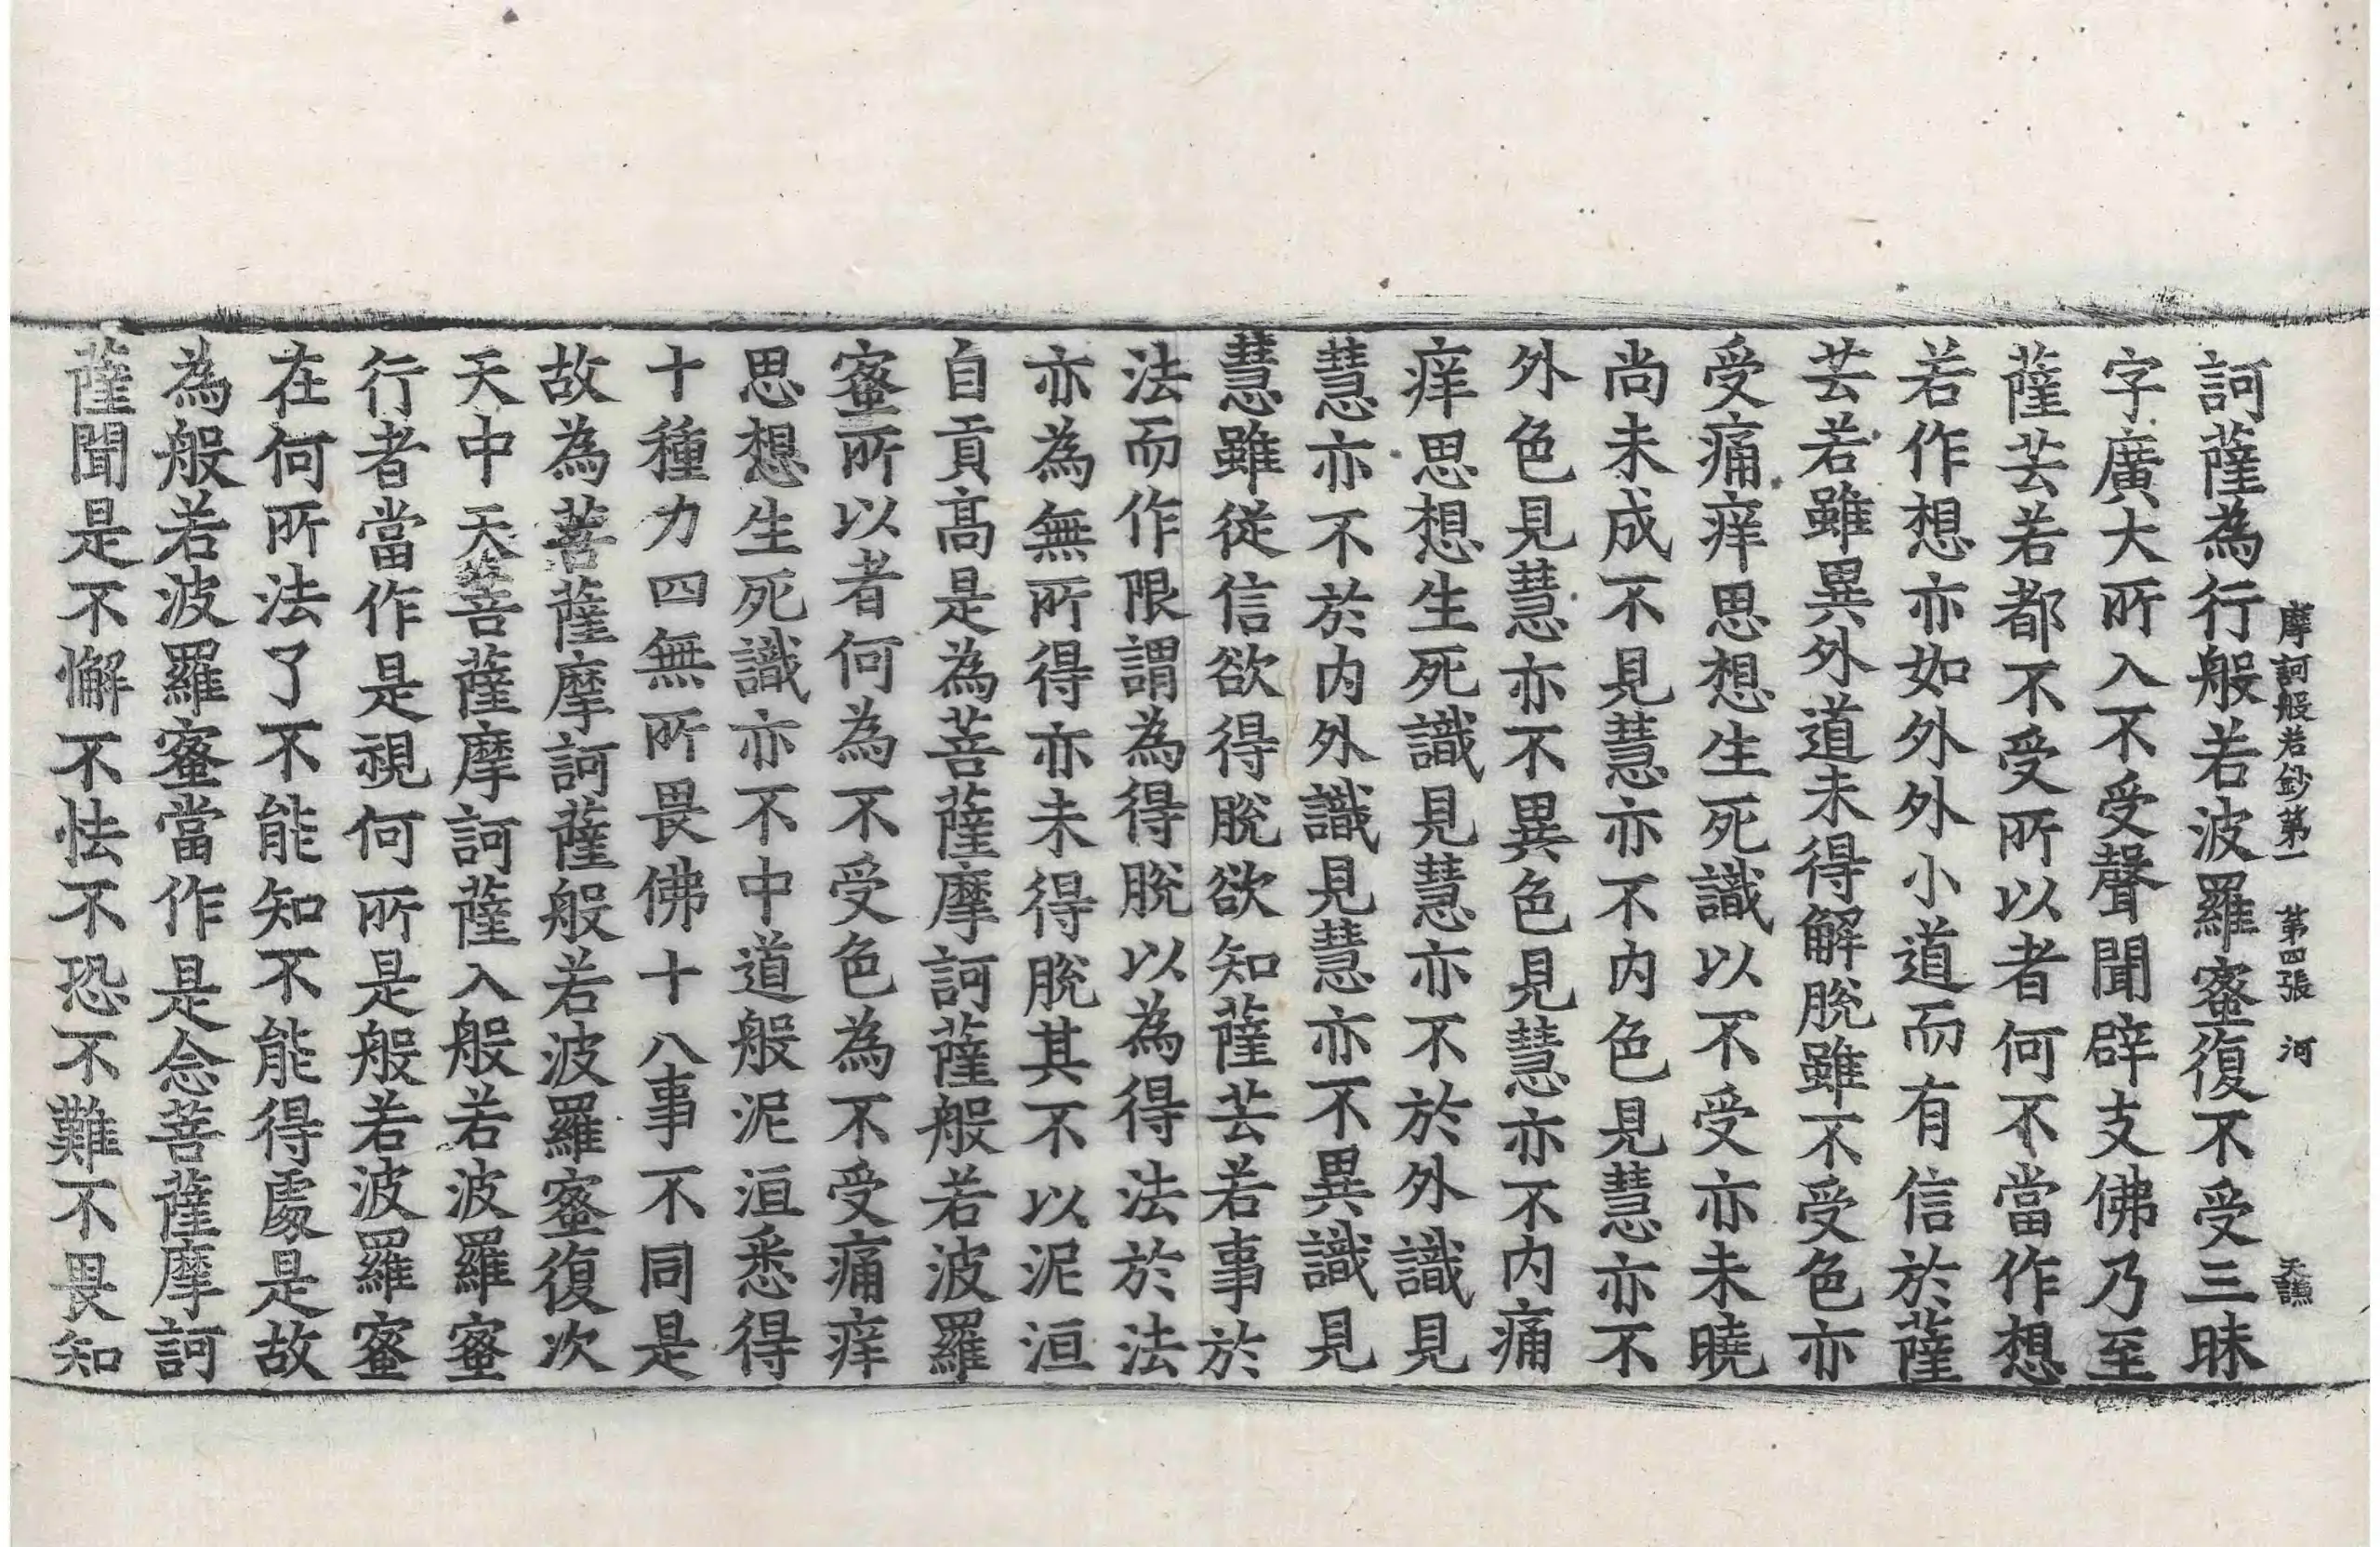 摩訶般若鈔第一　第四張　河　天譙
訶薩為行般若波羅蜜復不受三昧
字廣大所入不受聲聞辟支佛乃至
薩芸若都不受所以者何不當作想
若作想亦如外外小道而有信於薩
芸若雖異外道未得解脫雖不受色亦
受痛痒思想生死識以不受亦未曉
尚未成不見慧亦不内色見慧亦不
外色見慧亦不異色見慧亦不内痛
痒思想生死識見慧亦不於外識見
慧亦不於内外識見慧亦不異識見
慧雖從信欲得脫欲知薩芸若事於
法而作限謂為得脫以為得法於法
亦為無所得亦未得脫其不以泥洹
自貢高是為菩薩摩訶薩般若波羅
蜜所以者何為不受色為不受痛痒
思想生死識亦不中道般泥洹悉得
十種力四無所畏佛十八事不同是
故為菩薩摩訶薩般若波羅蜜復次
天中天菩薩摩訶薩入般若波羅蜜
行者當作是視何所是般若波羅蜜
在何所法了不能知不能得處是故
為般若波羅蜜當作是念菩薩摩訶
薩聞是不懈不怯不恐不難不畏知